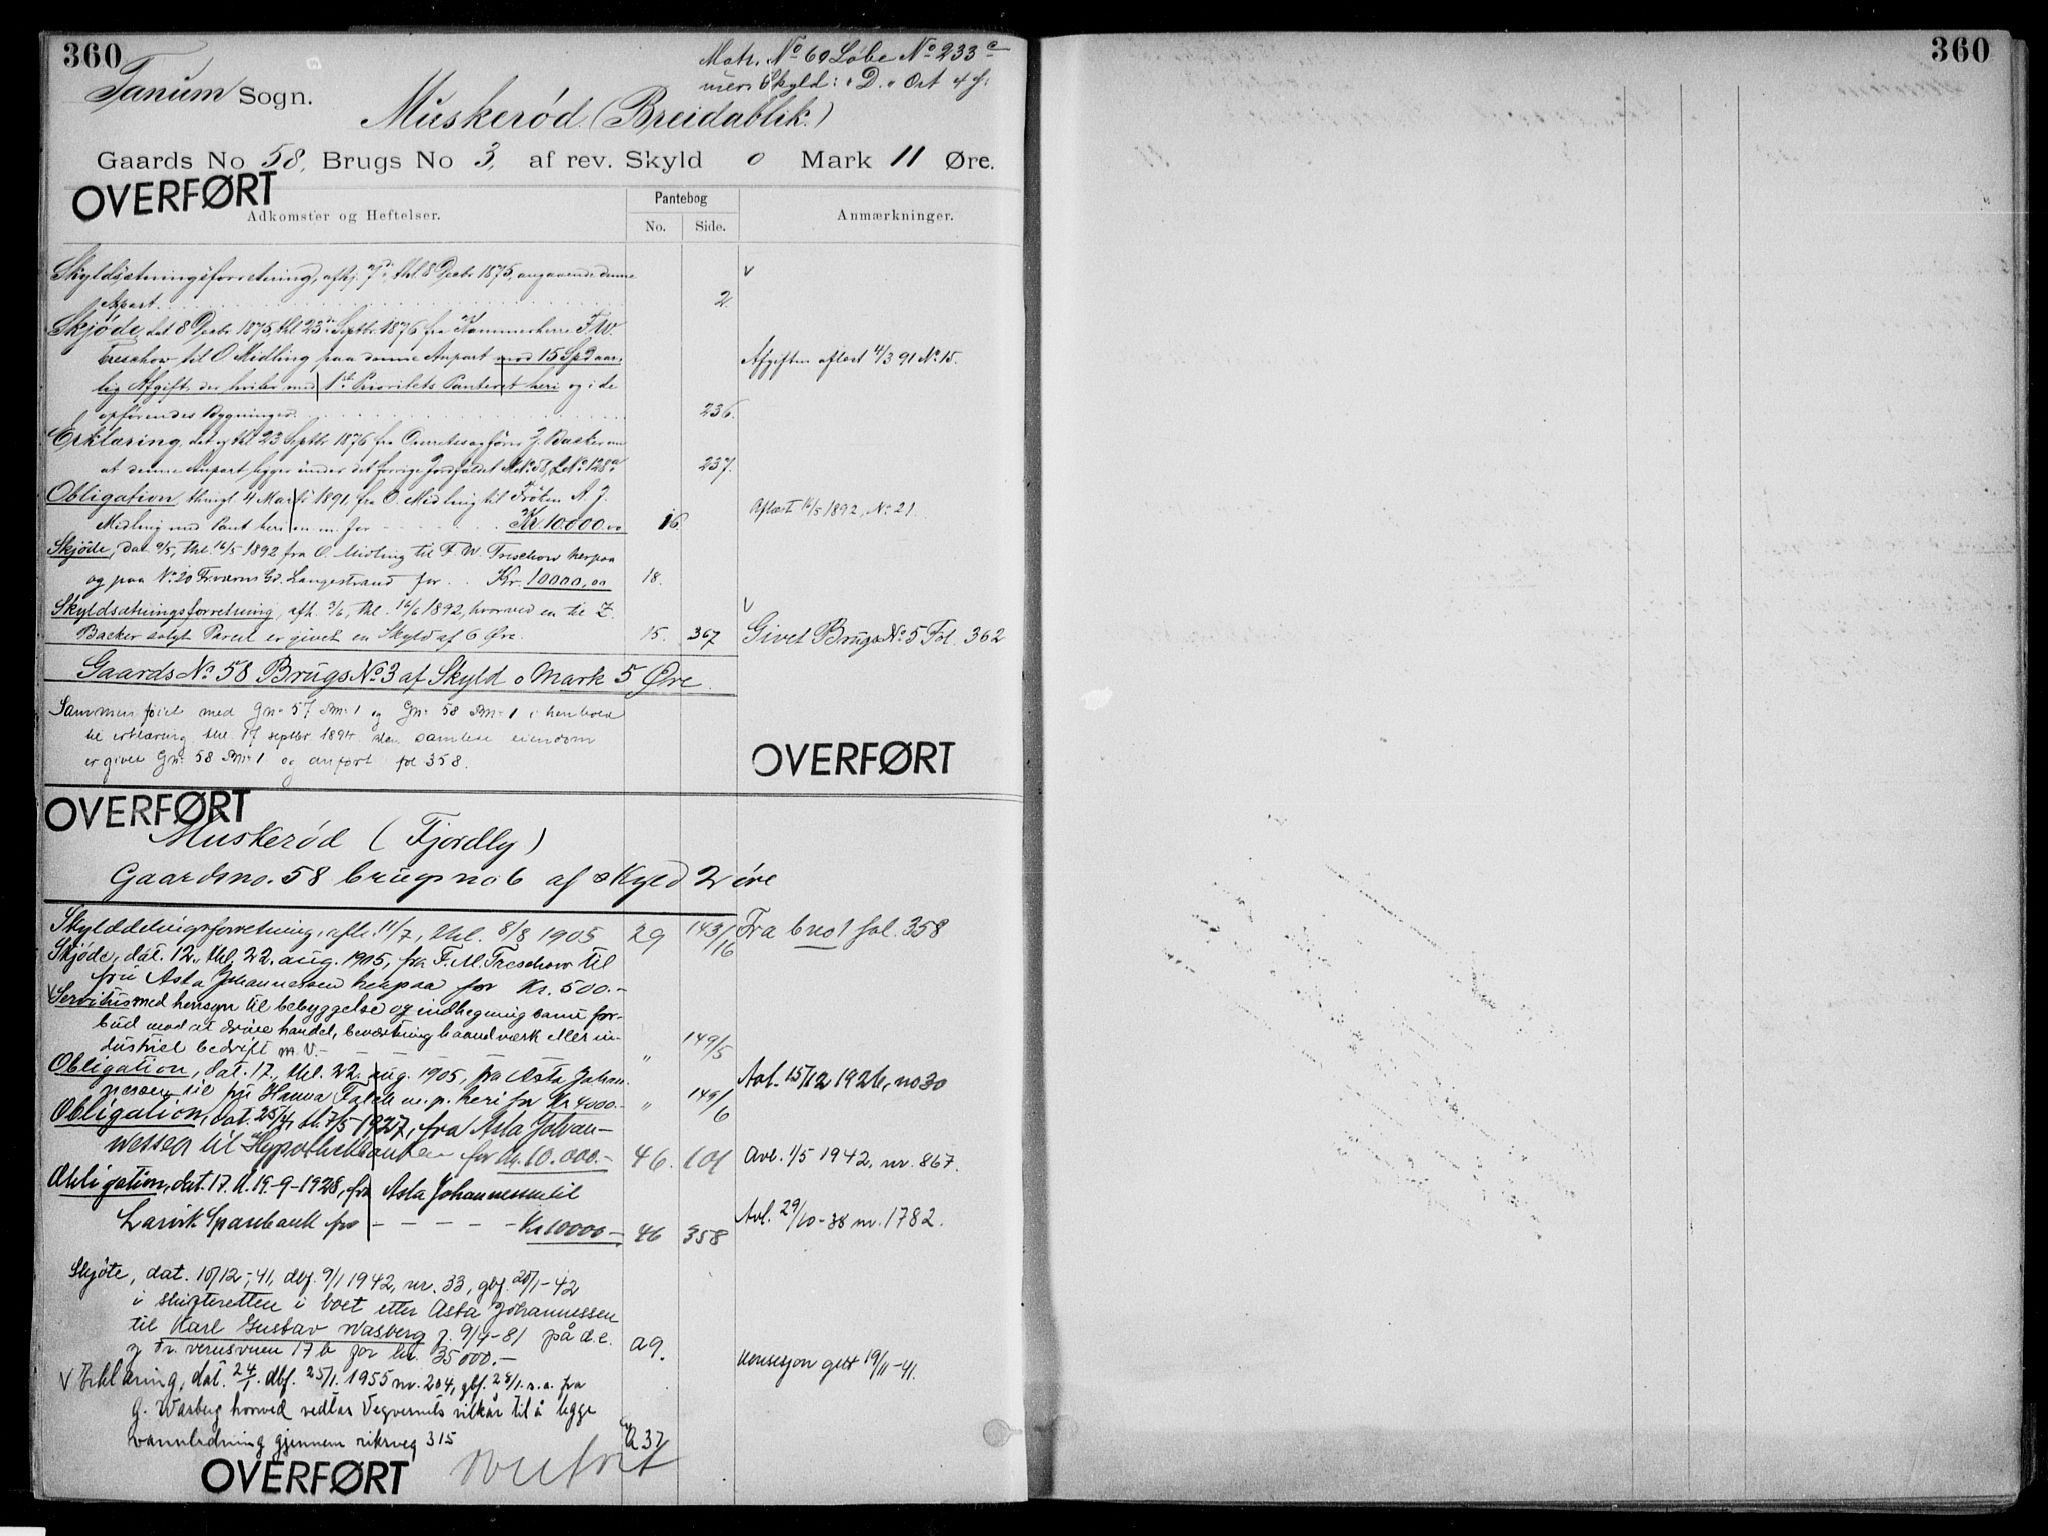 360
Tanum Sogn.
Matr. No 60 Løbe No 233 c
Skyld: " D. " Ort 4 ß.
Muskerød (Breidablik.)
Gaards No 58, Brugs No 3, af rev. Skyld 0 Mark 11 Øre.
OVERFØRT
Adkomster og Heftelser.
Pantebog
No. Side.
Anmærkninger.
Skyldsætningsforretning, afhj. thl 8 Decbr 1875, angaaende denne
Apart. 2
Skjøde, dat 8 Decbr 1875, thl 23 Septbr 1876 fra Kammerherre F. W.
Treschow til O Midling paa denne Anpart mod 15 Spd aar-
Afgiften aflæst 4/3 91 No 15.
lig Afgift, der hviler med 1ste Prioritets Panteret heri og i de
opførendes Bygninger. 236.
Erklæring, dat og thl 23 Septbr 1876 fra Overretssagfører J. Backer om
at denne Anpart ligger under det forrige Jordfaldet M No 58, L No 128 a 237.
Obligation, thingl 4 Marts 1891, fra O. Midling til Frøken A. J.
Midling med Pant heri m. m. for Kr 10.000.00 16.
Aflæst 16/5 1892, No 21
Skjøde, dat 9/5, thl. 16/5 1892 fra O. Midling til F. W. Treschow herpaa
og paa No 20 Langestrand for .. Kr. 10000,00 18.
Skyldsætningsforretning, afh. 3/6, thl. 16/6 1892, hvorved en til Z.
Backer solgt Parcel er givet en Skyld af 6 Øre. 15. 367
Givet Brugs No 5 Fol. 362
Gaards No 58 Brugs No 3 af Skyld 0 Mark 5 Øre.
Sammenføiet med Gno 57 Bno 1 og Gno 58 Bno 1 i henhold
til erklæring thl 17 septbr 1894 den samlede eiendom
er givet Gno 58 Bno 1 og anført fol 358.
OVERFØRT
OVERFØRT
Muskerød (Fjordly)
Gaardsno. 58 brugsno 6 af skyld 2 øre
Skylddelingsforretning, afh. 11/7, thl. 8/8 1905 29 143/16
Fra bno 1 fol. 358
Skjøde, dat. 12., thl. 22. aug. 1905, fra F. M. Treschow til
fru Asta Johannessen herpaa for Kr. 500.-
Servitut med hensyn til bebyggelse og indhegning samt for-
bud mod at drive handel, beværtning haandværk eller in-
dustriel bedrift m. v. - " 149/5
Obligation, dat. 17., thl. 22. aug. 1905, fra Asta Johan-
nessen til frk Hanna Falck m. p. heri for Kr 4000.- " 149/6
Avl. 15/12 1926, no 30
Obligation, dat. 25/4, tl. 7/5 1927, fra Asta Johan-
nessen til Hypothekbanken for Kr. 10.000.- 46. 101
Avl. 1/5 1942, nr. 867.
Obligation, dat. 17. tl. 19-9-1928, fra Asta Johannessen til
Larvik Sparebank for - - - - - Kr 10000.- 46 358
Avl. 29/10-38 nr. 1782.
Skjøte, dat. 10/12-41, dbf. 9/1 1942, nr. 33, gbf. 20/1-42
i skifteretten i boet etter Asta Johannessen
til Karl Gustav Wasberg f. 9/4-81 på d.e.
17 b for kr. 35000.- A9.
Konsesjon gitt 19/11-41.
v Erklæring, dat. 24/1. dbf. 25/1. 1955 nr. 204, gbf. 28/1. s.a. fra
G. Wasberg hvorved vedtas Vegvesenets vilkår til å legge
vannledning gjennem riksveg 315 A 37
OVERFØRT overført
360